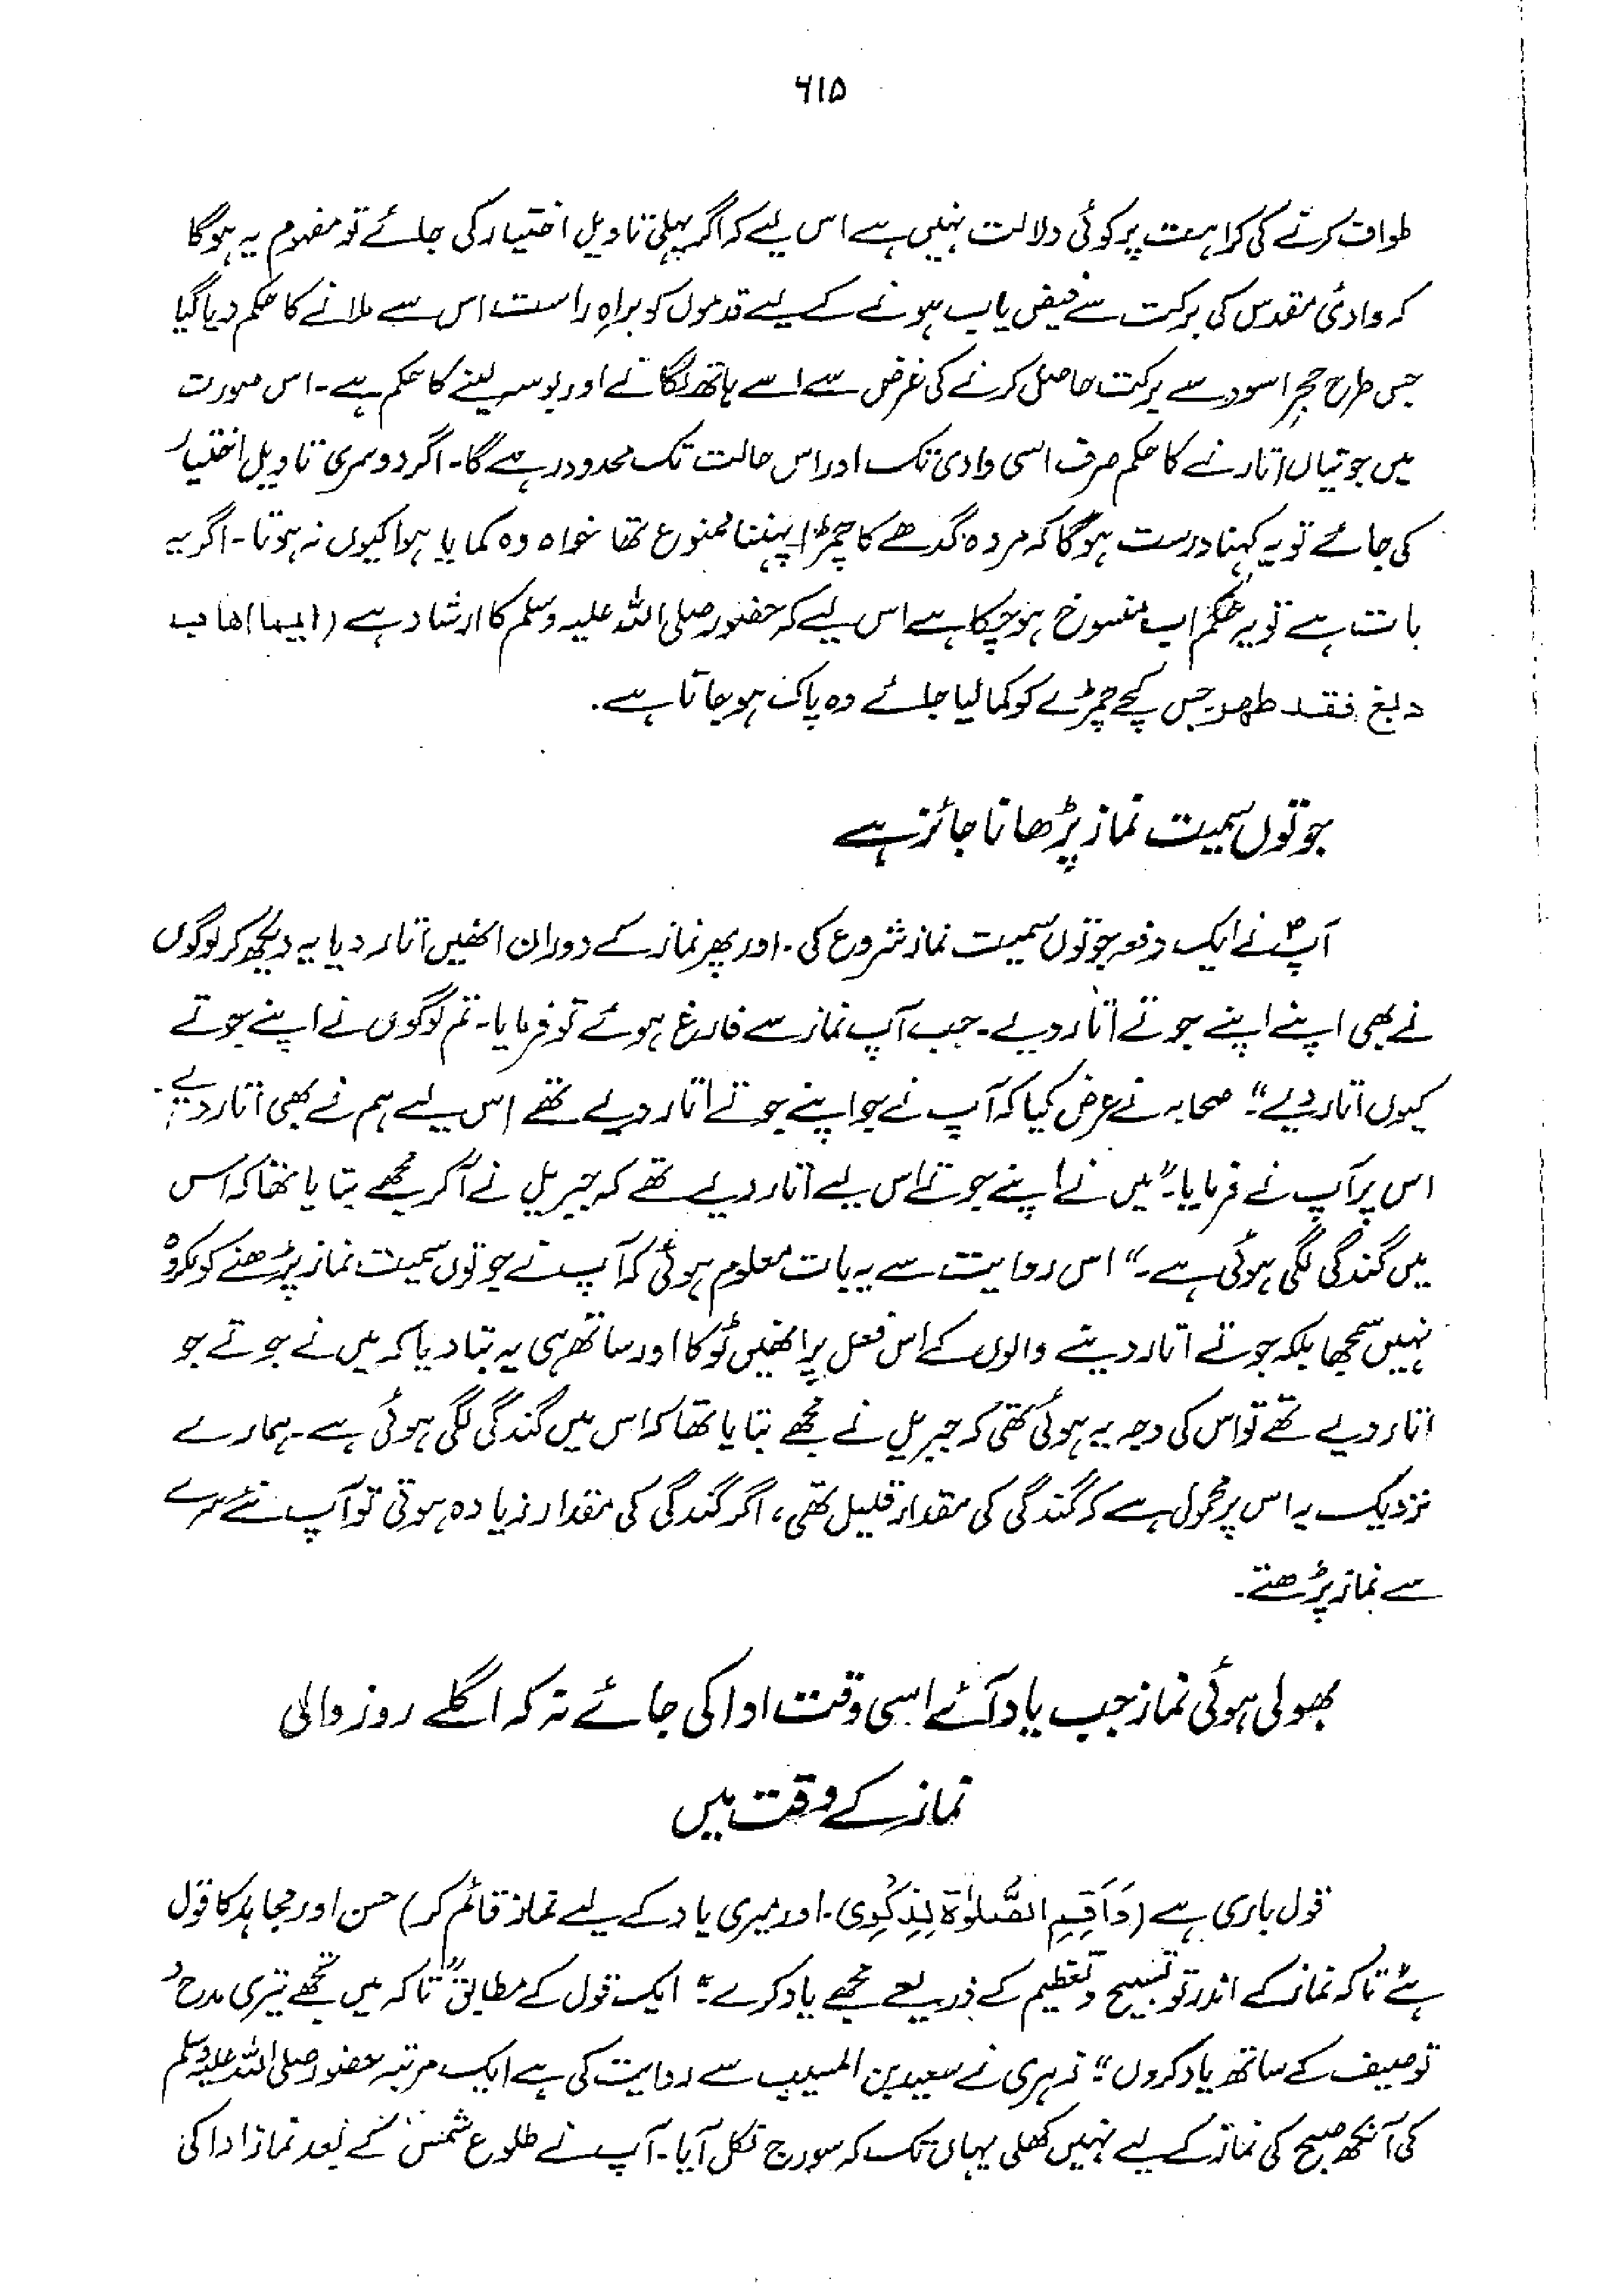 ۶۱۵
طواف کرنے کی کراہت پر کوئی دلالت نہیں ہے اس لیے کہ اگر پہلی تاویل اختیار کی جائے تو مفہوم یہ ہوگا
کہ وادئ مقدس کی برکت سے فیض یاب ہونے کے لیے قدموں کو براہِ راست اس سے ملانے کا حکم دیا گیا
جس طرح حجرِ اسود سے برکت حاصل کرنے کی غرض سے اسے ہاتھ لگانے اور بوسہ لینے کا حکم ہے۔ اس صورت
میں جوتیاں اتارنے کا حکم صرف اسی وادی تک اور اس حالت تک محدود رہے گا۔ اگر دوسری تاویل اختیار
کی جائے تو یہ کہنا درست ہوگا کہ مردہ گدھے کا چمڑا پہننا ممنوع تھا خواہ وہ کمایا ہوا کیوں نہ ہوتا۔ اگر یہ
بات ہے تو یہ حکم اب منسوخ ہو چکا ہے اس لیے کہ حضور صلی اللہ علیہ وسلم کا ارشاد ہے (ایما اھاب
دبغ فقد طھر۔ جس کچے چمڑے کو کما لیا جائے وہ پاک ہو جاتا ہے۔
جوتوں سمیت نماز پڑھانا جائز ہے
آپؐ نے ایک دفعہ جوتوں سمیت نماز شروع کی۔ اور پھر نماز کے دوران انھیں اتار دیا یہ دیکھ کر لوگوں
نے بھی اپنے اپنے جوتے اتار دیے۔ جب آپ نماز سے فارغ ہوئے تو فرمایا۔ تم لوگوں نے اپنے جوتے
کیوں اتار دیے"۔ صحابہ نے عرض کیا کہ آپ نے جو اپنے جوتے اتار دیے تھے اس لیے ہم نے بھی اتار دیے۔
اس پر آپ نے فرمایا۔ "میں نے اپنے جوتے اس لیے اتار دیے تھے کہ جبریل نے آ کر مجھے بتایا تھا کہ اس
میں گندگی لگی ہوئی ہے۔" اس روایت سے یہ بات معلوم ہوئی کہ آپ نے جوتوں سمیت نماز پڑھنے کو مکروہ
نہیں سمجھا بلکہ جوتے اتار دینے والوں کے اس فعل پر انھیں ٹوکا اور ساتھ ہی یہ بتا دیا کہ میں نے جوتے جو
اتار دیے تھے تو اس کی وجہ یہ ہوئی تھی کہ جبریل نے مجھے بتایا تھا کہ اس میں گندگی لگی ہوئی ہے۔ ہمارے
نزدیک یہ اس پر محمول ہے کہ گندگی کی مقدار قلیل تھی، اگر گندگی کی مقدار زیادہ ہوتی تو آپ نئے سرے
سے نماز پڑھتے۔
بھولی ہوئی نماز جب یاد آئے اسی وقت ادا کی جائے نہ کہ اگلے روز والی
نماز کے وقت میں
قول باری ہے (وَاَقِمِ الصَّلٰوۃَ لِذِکْرِی۔ اور میری یاد کے لیے نماز قائم کر) حسن اور مجاہد کا قول
ہے "تاکہ نماز کے اندر تو تسبیح و تعظیم کے ذریعے مجھے یاد کرے"۔ ایک قول کے مطابق "تاکہ میں تجھے تیری مدح و
توصیف کے ساتھ یاد کروں"۔ زہری نے سعید بن المسیب سے روایت کی ہے ایک مرتبہ حضور صلی اللہ علیہ وسلم
کی آنکھ صبح کی نماز کے لیے نہیں کھلی یہاں تک کہ سورج نکل آیا۔ آپ نے طلوع شمس کے بعد نماز ادا کی